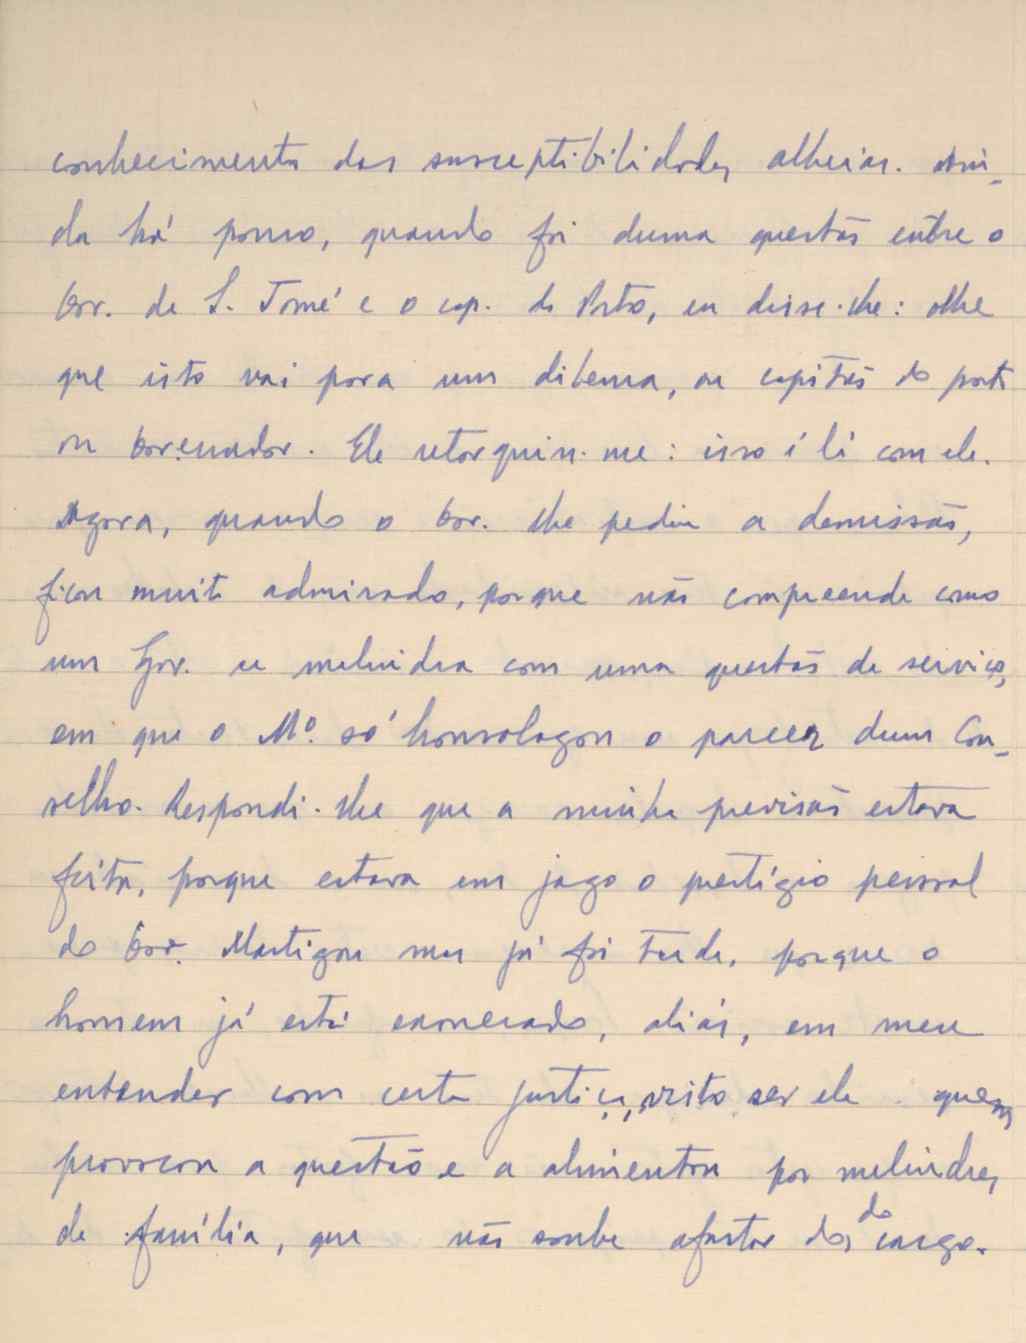 conhecimento das susceptibilidades alheias. Ain-
da há pouco, quando foi duma questão entre o
Gov. de S. Tomé e o cap. do Porto, eu disse-lhe: olhe
que isto vai para um dilema, ou capitão do porto
ou Governador. Ele retorquiu-me: isso é lá com ele.
Agora, quando o Gov. lhe pediu a demissão,
ficou muito admirado, porque não compreende como
um Gov. se melindra com uma questão de serviço,
em que o Mº. só homologou o parecer dum Con-
selho. Respondi-lhe que a minha previsão estava
feita, porque estava em jogo o prestígio pessoal
do Gov. Mastigou mas já foi tarde, porque o
homem já está exonerado, aliás, em meu
entender com certa justiça, visto ser ele quem
provocou a questão e a alimentou por melindres
de família, que não soube afastar dos do cargo.